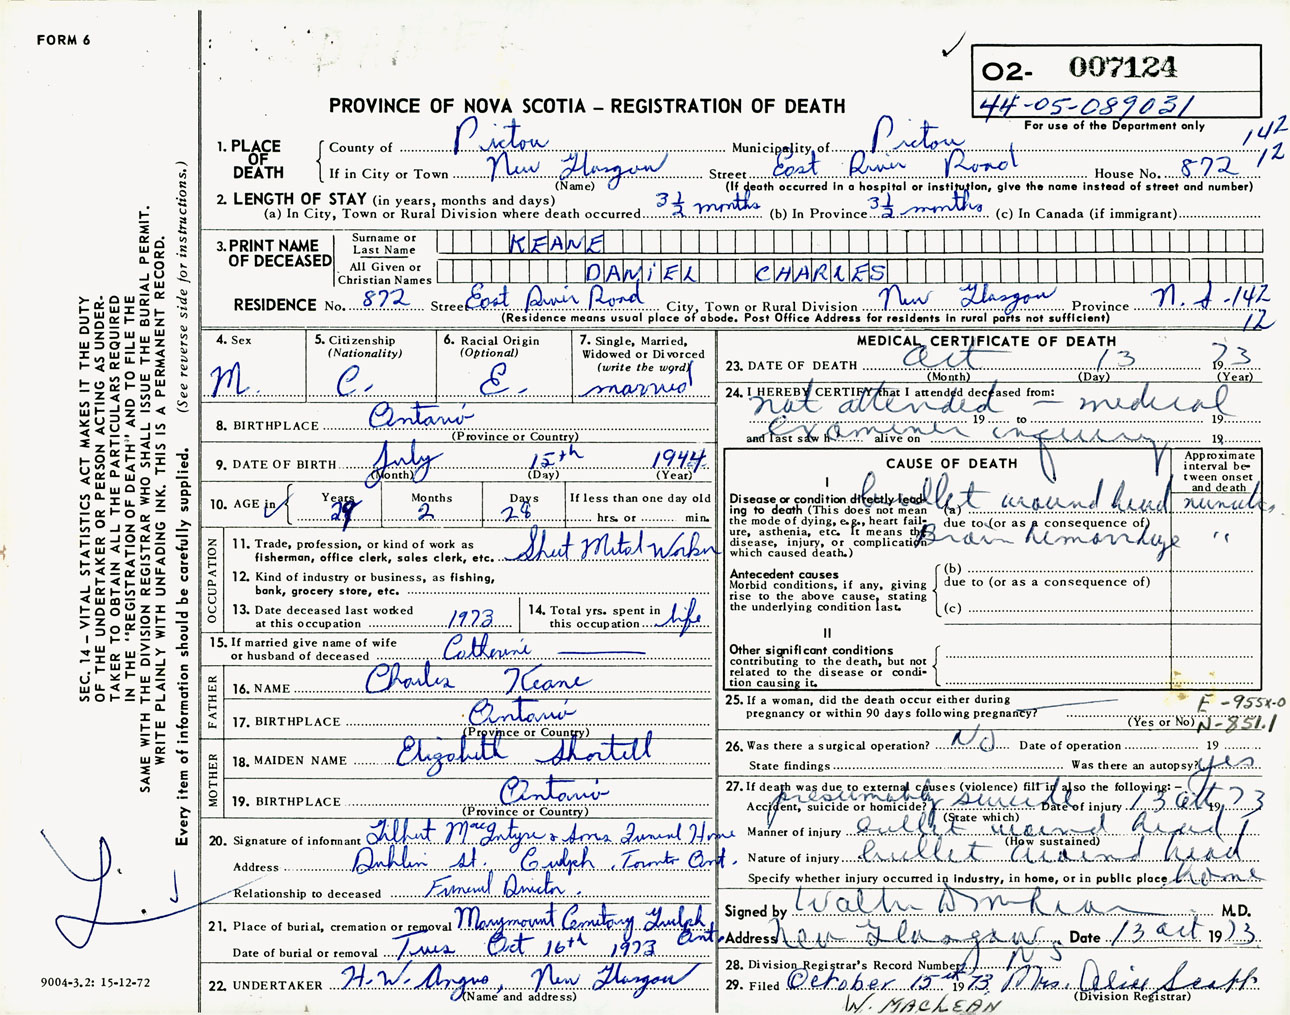 FORM 6
O2- 007124
44-05-089031
For use of the Department only
PROVINCE OF NOVA SCOTIA – REGISTRATION OF DEATH
142
12
1. PLACE OF DEATH
County of Pictou Municipality of Pictou
If in City or Town New Glasgow Street East River Road House No. 872
(Name) (If death occurred in a hospital or institution, give the name instead of street and number)
2. LENGTH OF STAY (in years, months and days)
(a) In City, Town or Rural Division where death occurred 3½ months (b) In Province 3½ months (c) In Canada (if immigrant)
3. PRINT NAME OF DECEASED
Surname or Last Name KEANE
All Given or Christian Names DANIEL CHARLES
RESIDENCE No. 872 Street East River Road City, Town or Rural Division New Glasgow Province N. S. -142
12
(Residence means usual place of abode. Post Office Address for residents in rural parts not sufficient)
4. Sex M.
5. Citizenship (Nationality) C.
6. Racial Origin (Optional) E.
7. Single, Married, Widowed or Divorced (write the word) married
8. BIRTHPLACE Ontario
(Province or Country)
9. DATE OF BIRTH July 15th 1944
(Month) (Day) (Year)
10. AGE in Years 29 Months 2 Days 28 If less than one day old hrs. or min.
OCCUPATION
11. Trade, profession, or kind of work as fisherman, office clerk, sales clerk, etc. Sheet Metal Worker
12. Kind of industry or business, as fishing, bank, grocery store, etc.
13. Date deceased last worked at this occupation 1973
14. Total yrs. spent in this occupation life
15. If married give name of wife or husband of deceased Catherine
FATHER
16. NAME Charles Keane
17. BIRTHPLACE Ontario
(Province or Country)
MOTHER
18. MAIDEN NAME Elizabeth Shortell
19. BIRTHPLACE Ontario
(Province or Country)
20. Signature of informant Gilbert MacIntyre & Sons Funeral Home
Address Dublin St. Guelph, Toronto Ont.
Relationship to deceased Funeral Director.
21. Place of burial, cremation or removal Marymount Cemetery Guelph Ont.
Date of burial or removal Tues Oct 16th 1973
22. UNDERTAKER H. W. Angus, New Glasgow
(Name and address)
MEDICAL CERTIFICATE OF DEATH
23. DATE OF DEATH Oct 13 1973
(Month) (Day) (Year)
24. I HEREBY CERTIFY that I attended deceased from:
not attended – medical
19 to 19
and last saw h alive on 19
examiner inquiry
CAUSE OF DEATH
Approximate interval between onset and death
I
Disease or condition directly leading to death (This does not mean the mode of dying, e.g., heart failure, asthenia, etc. It means the disease, injury, or complication which caused death.)
(a) bullet wound head minutes
due to (or as a consequence of)
Brain hemorrhage "
Antecedent causes
Morbid conditions, if any, giving rise to the above cause, stating the underlying condition last.
(b)
due to (or as a consequence of)
(c)
II
Other significant conditions
contributing to the death, but not related to the disease or condition causing it.
25. If a woman, did the death occur either during pregnancy or within 90 days following pregnancy?
(Yes or No)
E -955X-0
N-851.1
26. Was there a surgical operation? No Date of operation 19
State findings Was there an autopsy? yes
27. If death was due to external causes (violence) fill in also the following:-
Accident, suicide or homicide? presumably suicide Date of injury 13 Oct 1973
(State which)
Manner of injury bullet wound head
(How sustained)
Nature of injury bullet wound head
Specify whether injury occurred in industry, in home, or in public place home
Signed by M.D.
Address New Glasgow NS Date 13 Oct 1973
28. Division Registrar's Record Number
29. Filed October 15th 1973 Mrs. Alice Scott
(Division Registrar)
W. MACLEAN
SEC. 14 – VITAL STATISTICS ACT MAKES IT THE DUTY
OF THE UNDERTAKER OR PERSON ACTING AS UNDER-
TAKER TO OBTAIN ALL THE PARTICULARS REQUIRED
IN THE "REGISTRATION OF DEATH" AND TO FILE THE
SAME WITH THE DIVISION REGISTRAR WHO SHALL ISSUE THE BURIAL PERMIT.
WRITE PLAINLY WITH UNFADING INK. THIS IS A PERMANENT RECORD.
Every item of information should be carefully supplied. (See reverse side for instructions.)
9004-3.2: 15-12-72